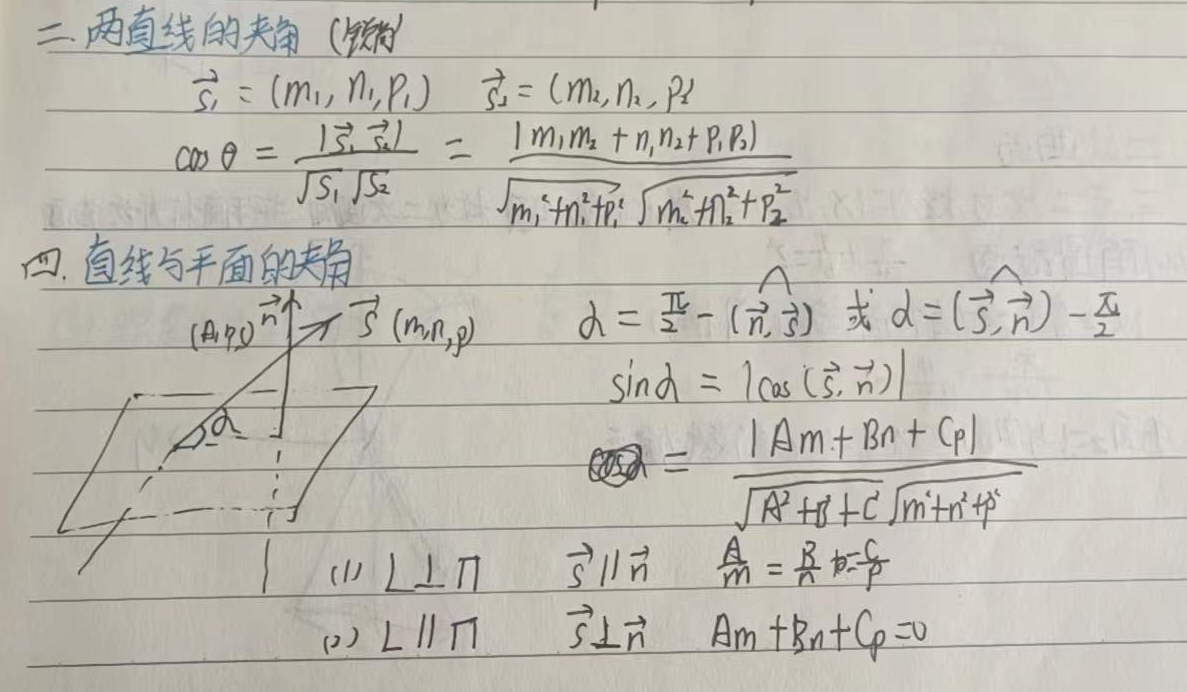 二.两直线的夹角 (锐角)
s₁→ = (m₁, n₁, p₁) s₂→ = (m₂, n₂, p₂
cosθ = |s₁→ s₂→| / √s₁ √s₂ = |m₁m₂ + n₁n₂ + p₁p₂| / √(m₁²+n₁²+p₁²) √(m₂²+n₂²+p₂²)
四.直线与平面的夹角
n→ s→ (m,n,p)
α
α = π/2 - (n→, s→) 或 α = (s→, n→) - π/2
sinα = |cos(s→, n→)|
= |Am + Bn + Cp| / √(A²+B²+C²) √(m²+n²+p²)
(1) L⊥Π s→ // n→ A/m = B/n = C/p
(2) L // Π s→⊥n→ Am + Bn + Cp = 0